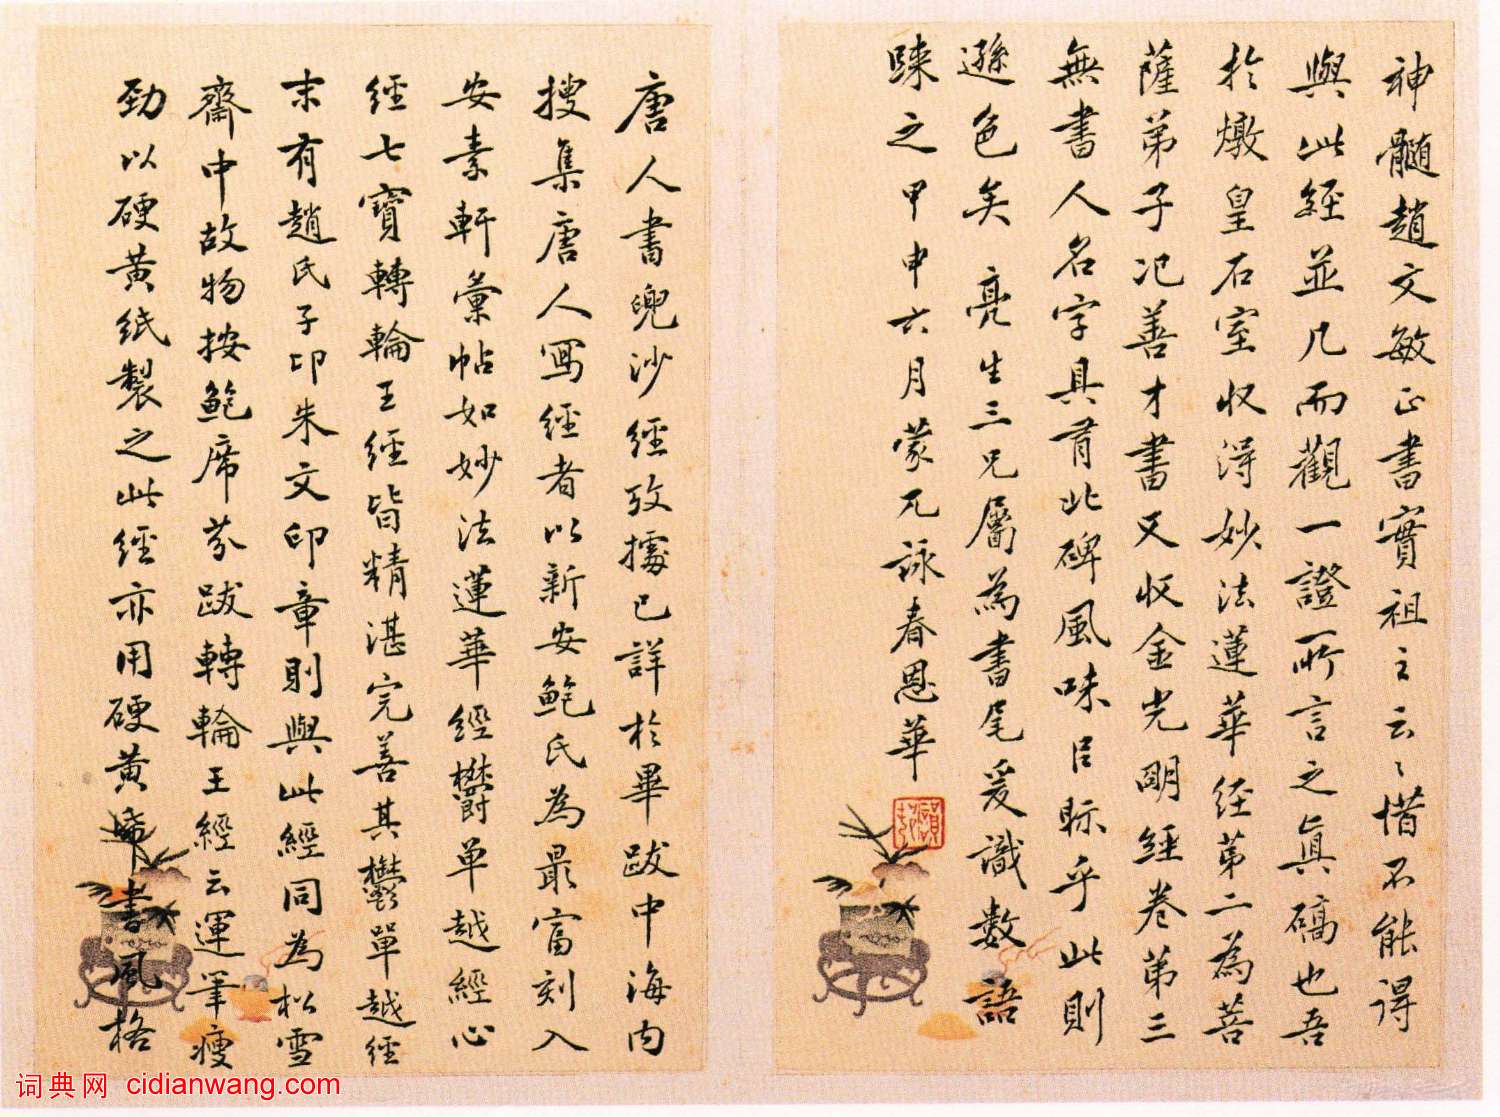 唐人書兜沙經攷據已詳於畢跋中海内
搜集唐人寫經者以新安鮑氏為最富刻入
安素軒彙帖如妙法蓮華經欝單越經心
經七寶轉輪王經皆精湛完善其欝單越經
末有趙氏子印朱文印章則與此經同為松雪
齋中故物按鮑席芬跋轉輪王經云運筆瘦
勁以硬黃紙製之此經亦用硬黃帋書風格
神髓趙文敏正書實祖之云〻惜不能得
與此經並几而觀一證所言之真礄也吾
於燉皇石室收得妙法蓮華经第二為菩
薩弟子氾善才書又收金光明經卷第三
無書人名字具有北碑風味㠯眎乎此則
遜色矣 亮生三兄屬為書尾爰識數語
踈之甲申六月蒙兀詠春恩華
词典网 cidianwang.com